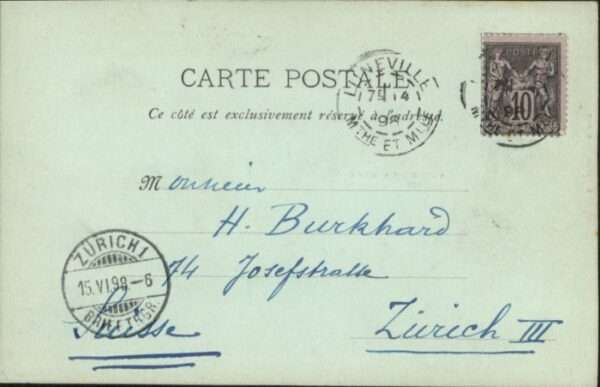 CARTE POSTALE
Ce côté est exclusivement réservé à l'adresse.
LUNEVILLE
14
98
MTHE ET MLLE
POSTE
10
Monsieur
H. Burkhard
74 Josefstrasse
Zürich III
Suisse
ZÜRICH 1
15.VI.98–6
BRIEFTRGR.